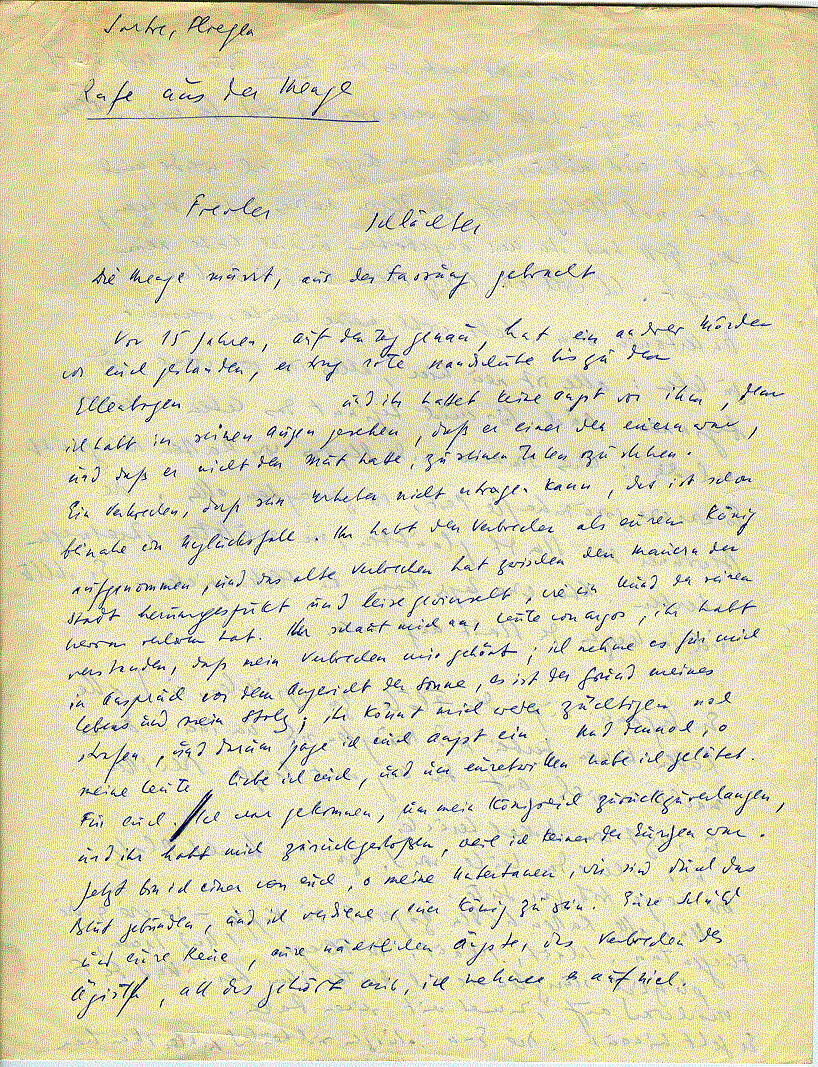 Sartre, Fliegen
Rufe aus der Menge
Frevler Schlächter
Die Menge murrt, aus der Fassung gebracht
Vor 15 Jahren, auf den Tag genau, hat ein andrer Mörder
vor euch gestanden, er trug rote Handschuhe bis zu den
Ellenbogen und ihr hattet keine Angst vor ihm, denn
ihr habt in seinen Augen gesehen, daß er einer der euern war,
und daß er nicht den Mut hatte, zu seinen Taten zu stehen.
Ein Verbrechen, das sein Urheber nicht ertragen kann, das ist schon
beinahe ein Unglücksfall. Ihr habt den Verbrecher als euren König
aufgenommen, und das alte Verbrechen hat zwischen den Mauern der
Stadt herumgespukt und leise gewinselt, wie ein Hund der seinen
Herrn verloren hat. Ihr schaut mich an, Leute von Argos, ihr habt
verstanden, daß mein Verbrechen mir gehört; ich nehme es für mich
in Anspruch vor dem Angesicht der Sonne, es ist der Grund meines
Lebens und mein Stolz; ihr könnt mich weder züchtigen noch
strafen, und darum jage ich euch Angst ein Und dennoch, o
meine Leute, liebe ich euch, und um euretwillen habe ich getötet.
Für euch. Ich war gekommen, um mein Königreich zurückzuverlangen,
und ihr habt mich zurückgestoßen, weil ich keiner der Eurigen war.
Jetzt bin ich einer von euch, o meine Untertanen, wir sind durch das
Blut gebunden, und ich verdiene, euer König zu sein. Eure Schuld
und eure Reue, eure nächtlichen Ängste, das Verbrechen des
Ägisth, all das gehört mir, ich nehme es auf mich.